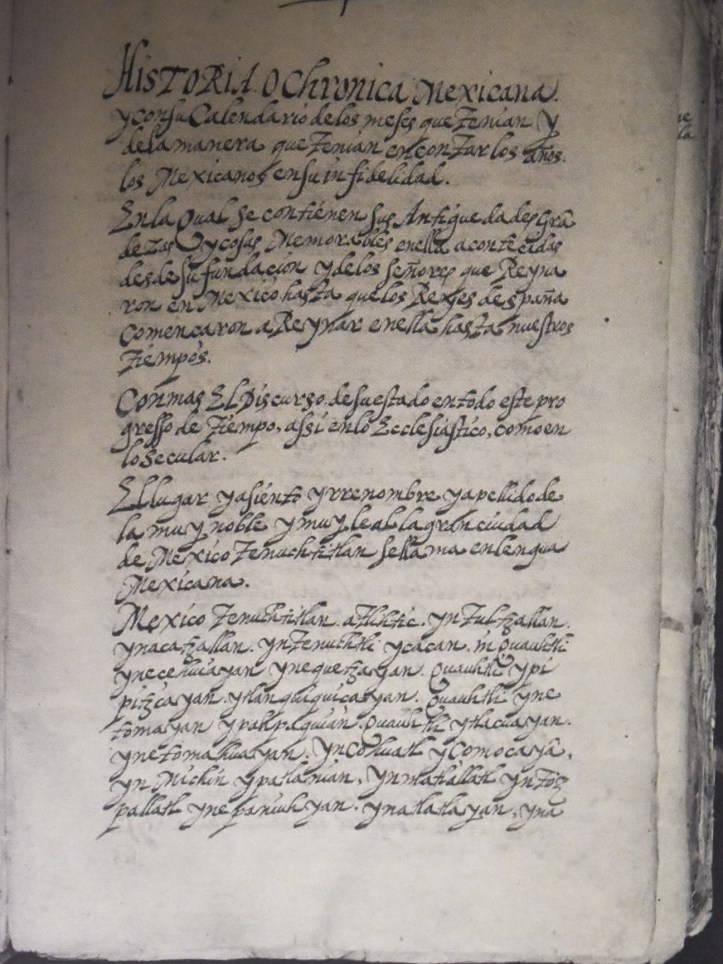 HISTORIA O Chronica Mexicana.
y con su Calendario de los meses que Tenian y
de la manera que Tenian en contar los años.
los Mexicanos en su infidelidad.
En la Qual se contienen sus Antiguedades Grã
dezas y cosas Memorables en ella acontecidas
desde su fundacion y de los Señores que Reyna
ron en Mexico hasta que los Reyes de españa
comencaron a Reynar en ella hasta nuestros
tiempos.
Con mas El Discurso de su estado en todo este pro
gresso de Tiempo, assi en lo Ecclesiastico, como en
lo secular.
El lugar y asiento y rrenombre y apellido de
la muy noble y muy leal la gran ciudad
de Mexico Tenuchtitlan se llama en lengua
Mexicana.
Mexico tenuchtitlan. atlihtic. yn Tultzallan.
ynacatzallan. yn Tenuchtli ycacan. in Quauhtli
ynecehuiayan ynequetzayan. Quauhtli ypi
pitzcayan. ytlanquiquicayan. Quauhtli yne
tomayan ypahpaquian. Quauhtli ytlacuayan.
ynetomahuayan. yn Cohuatl yçomocayã.
yn Michin ypatlanian. yn matlallatl yn Toz
pallatl ynepaniuhyan. ynatlatlayan. yna